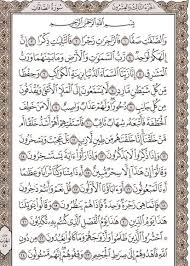 الجزء الثالث والعشرون سورة الصافات
بِسْمِ اللَّهِ الرَّحْمَٰنِ الرَّحِيمِ
وَالصَّافَّاتِ صَفًّا ١ فَالزَّاجِرَاتِ زَجْرًا ٢ فَالتَّالِيَاتِ ذِكْرًا ٣ إِنَّ
إِلَٰهَكُمْ لَوَاحِدٌ ٤ رَّبُّ السَّمَاوَاتِ وَالْأَرْضِ وَمَا بَيْنَهُمَا وَرَبُّ
الْمَشَارِقِ ٥ إِنَّا زَيَّنَّا السَّمَاءَ الدُّنْيَا بِزِينَةٍ الْكَوَاكِبِ ٦ وَحِفْظًا
مِّن كُلِّ شَيْطَانٍ مَّارِدٍ ٧ لَّا يَسَّمَّعُونَ إِلَى الْمَلَإِ الْأَعْلَىٰ وَيُقْذَفُونَ
مِن كُلِّ جَانِبٍ ٨ دُحُورًا وَلَهُمْ عَذَابٌ وَاصِبٌ ٩ إِلَّا مَنْ خَطِفَ
الْخَطْفَةَ فَأَتْبَعَهُ شِهَابٌ ثَاقِبٌ ١٠ فَاسْتَفْتِهِمْ أَهُمْ أَشَدُّ خَلْقًا أَم
مَّنْ خَلَقْنَا إِنَّا خَلَقْنَاهُم مِّن طِينٍ لَّازِبٍ ١١ بَلْ عَجِبْتَ وَيَسْخَرُونَ
١٢ وَإِذَا ذُكِّرُوا لَا يَذْكُرُونَ ١٣ وَإِذَا رَأَوْا آيَةً يَسْتَسْخِرُونَ ١٤
وَقَالُوا إِنْ هَٰذَا إِلَّا سِحْرٌ مُّبِينٌ ١٥ أَإِذَا مِتْنَا وَكُنَّا تُرَابًا وَعِظَامًا أَإِنَّا
لَمَبْعُوثُونَ ١٦ أَوَآبَاؤُنَا الْأَوَّلُونَ ١٧ قُلْ نَعَمْ وَأَنتُمْ دَاخِرُونَ ١٨
فَإِنَّمَا هِيَ زَجْرَةٌ وَاحِدَةٌ فَإِذَا هُمْ يَنظُرُونَ ١٩ وَقَالُوا يَا وَيْلَنَا
هَٰذَا يَوْمُ الدِّينِ ٢٠ هَٰذَا يَوْمُ الْفَصْلِ الَّذِي كُنتُم بِهِ تُكَذِّبُونَ ٢١
احْشُرُوا الَّذِينَ ظَلَمُوا وَأَزْوَاجَهُمْ وَمَا كَانُوا يَعْبُدُونَ ٢٢ مِن دُونِ
اللَّهِ فَاهْدُوهُمْ إِلَىٰ صِرَاطِ الْجَحِيمِ ٢٣ وَقِفُوهُمْ إِنَّهُم مَّسْئُولُونَ ٢٤